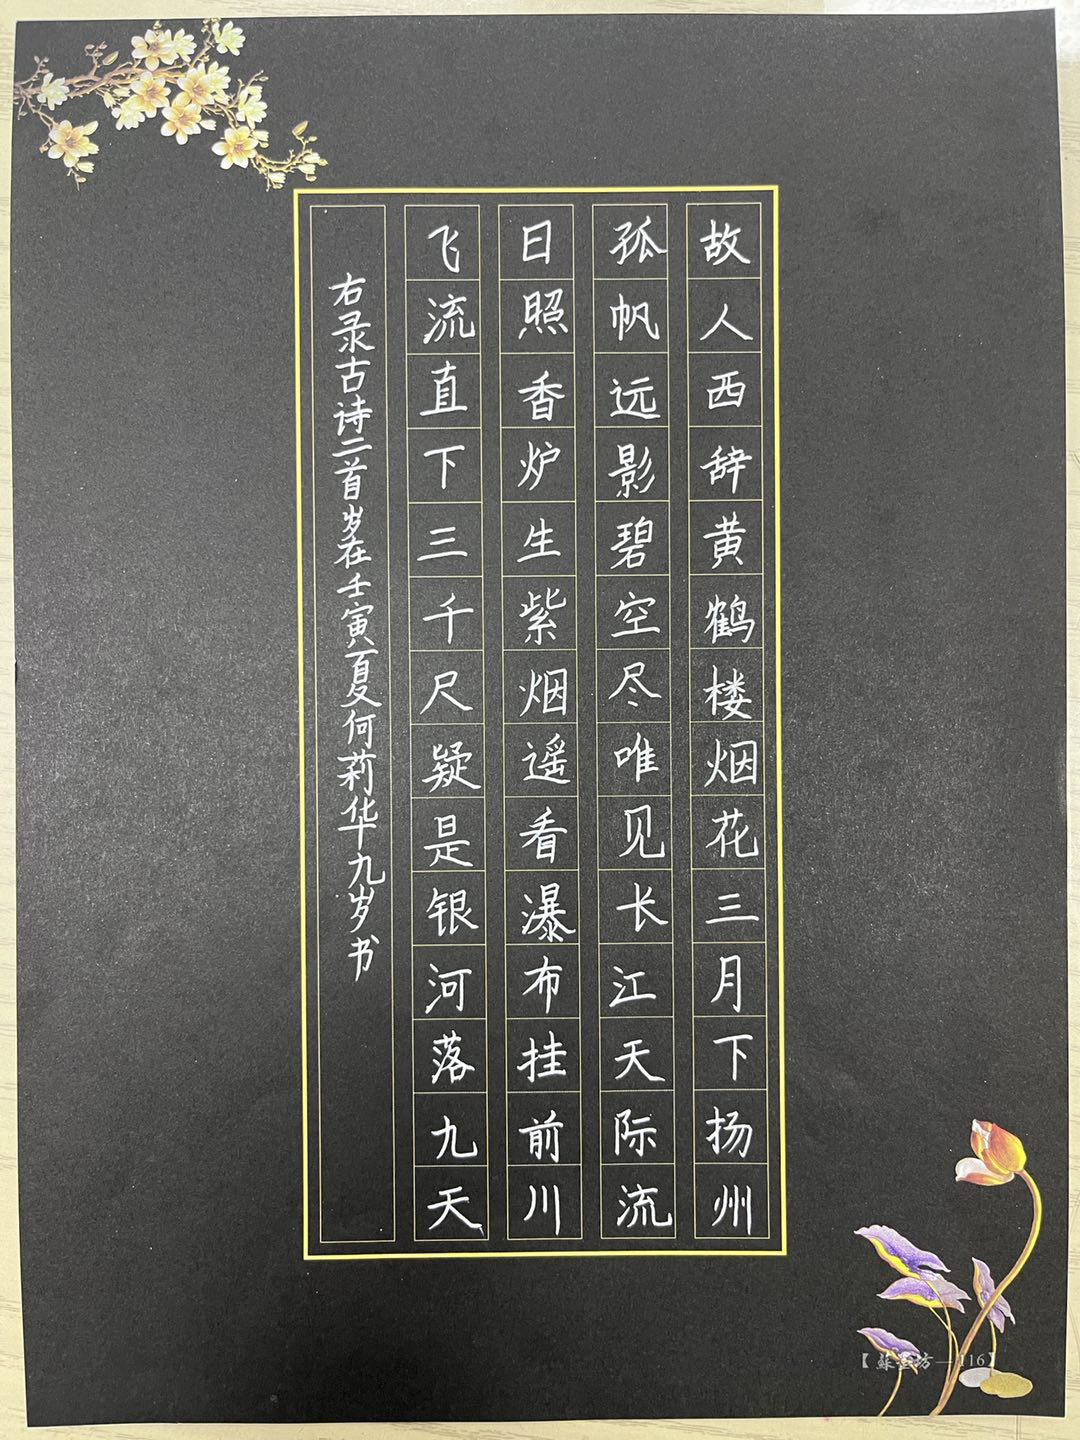 故人西辞黄鹤楼烟花三月下扬州
孤帆远影碧空尽唯见长江天际流
日照香炉生紫烟遥看瀑布挂前川
飞流直下三千尺疑是银河落九天
右录古诗二首岁在壬寅夏何莉华九岁书
【蘇 坊—116】